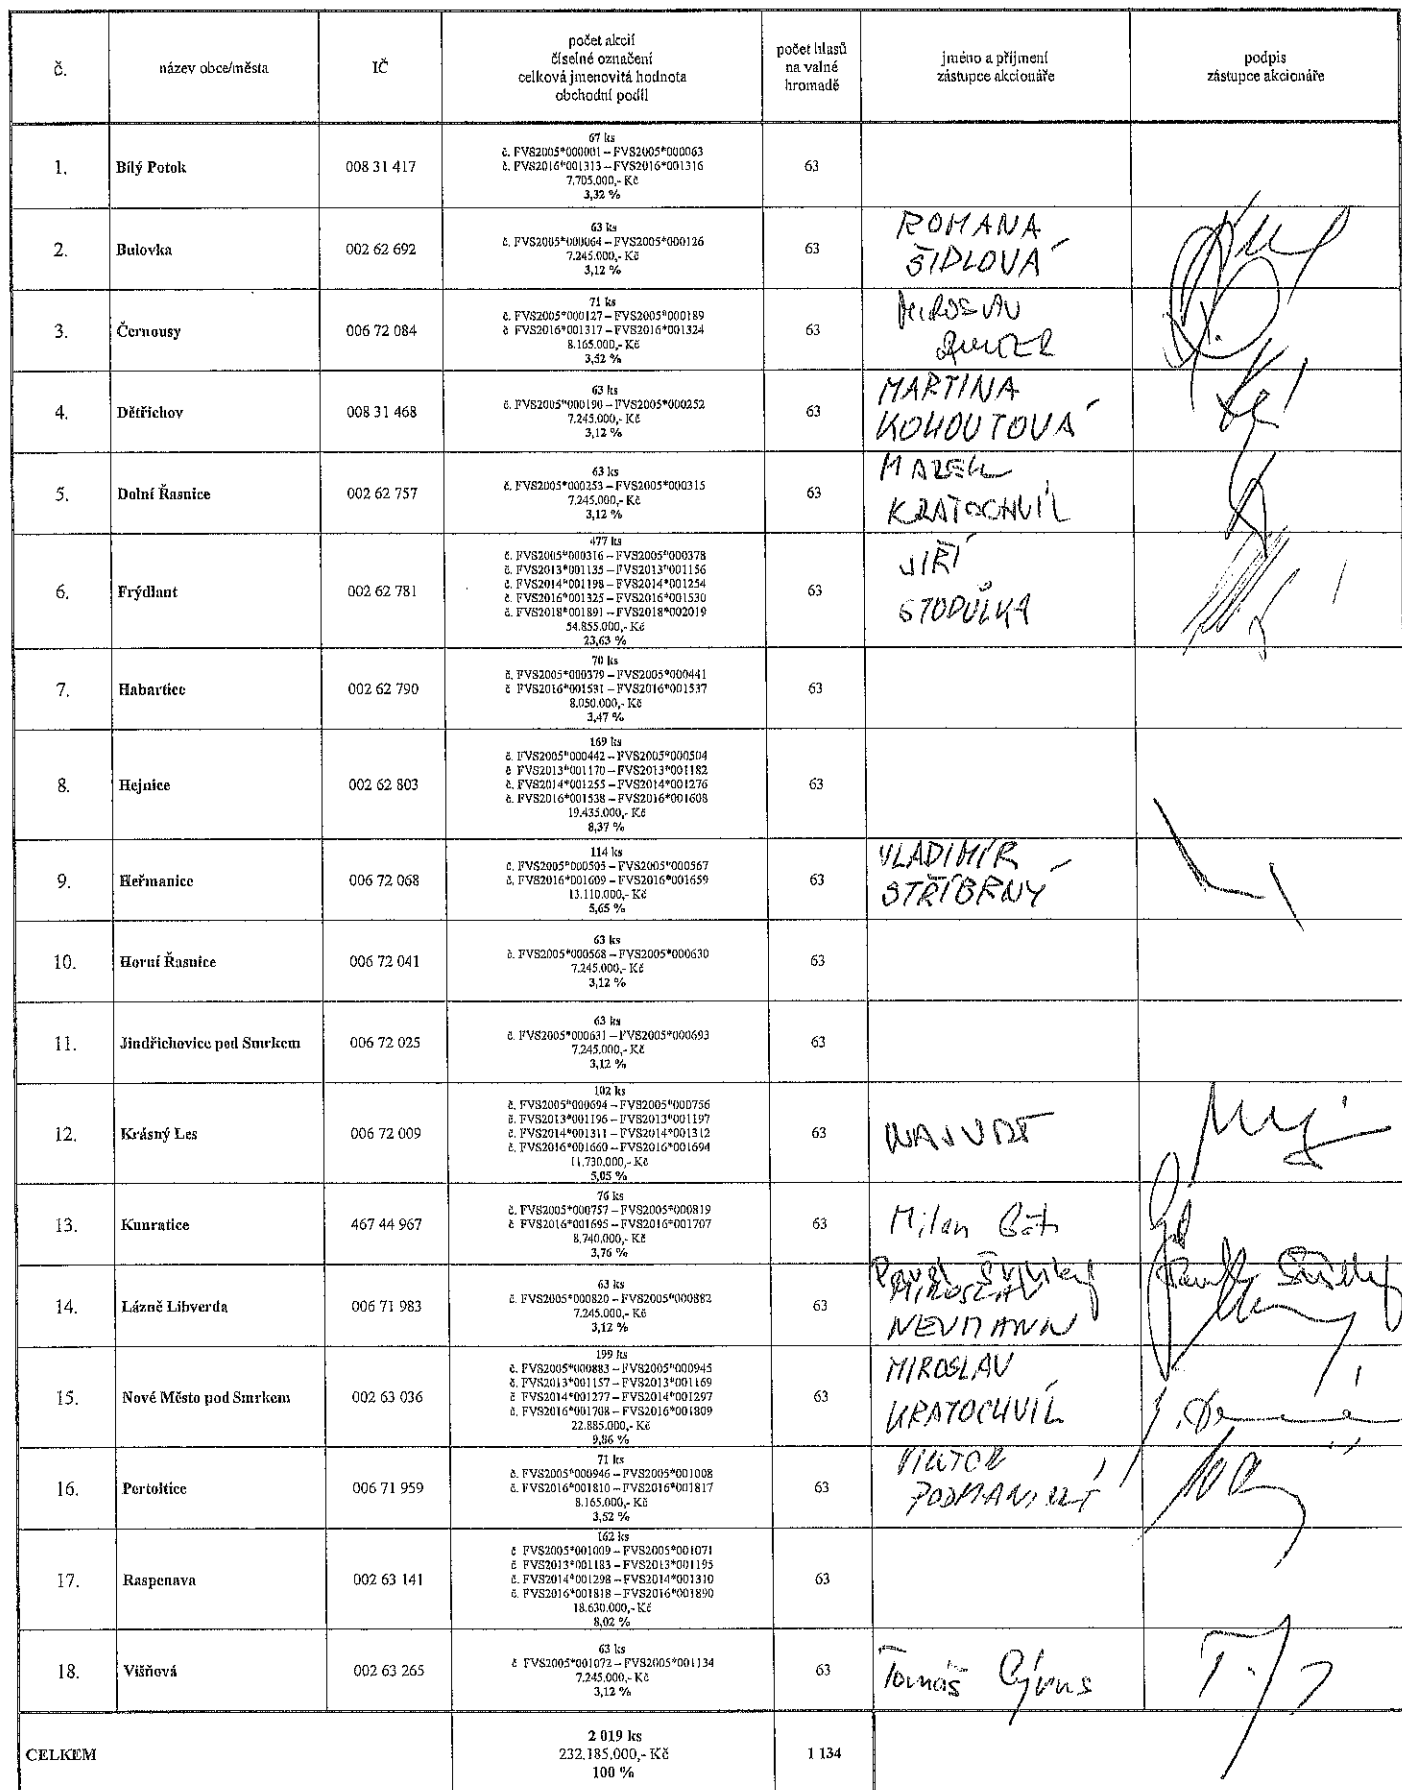 č.
název obce/města
IČ
počet akcií
číselné označení
celková jmenovitá hodnota
obchodní podíl
počet hlasů
na valné
hromadě
jméno a příjmení
zástupce akcionáře
podpis
zástupce akcionáře
1.
Bílý Potok
008 31 417
67 ks
č. FVS2005*000001 – FVS2005*000063
č. FVS2016*001313 – FVS2016*001316
7.705.000,- Kč
3,32 %
63
2.
Bulovka
002 62 692
63 ks
č. FVS2005*000064 – FVS2005*000126
7.245.000,- Kč
3,12 %
63
ROMANA
ŠIDLOVÁ
3.
Černousy
006 72 084
71 ks
č. FVS2005*000127 – FVS2005*000189
č FVS2016*001317 – FVS2016*001324
8.165.000,- Kč
3,52 %
63
MIROSLAV
4.
Dětřichov
008 31 468
63 ks
č. FVS2005*000190 – FVS2005*000252
7.245.000,- Kč
3,12 %
63
MARTINA
KOHOUTOVÁ
5.
Dolní Řasnice
002 62 757
63 ks
č. FVS2005*000253 – FVS2005*000315
7.245.000,- Kč
3,12 %
63
MAREK
KRATOCHVÍL
6.
Frýdlant
002 62 781
477 ks
č. FVS2005*000316 – FVS2005*000378
č. FVS2013*001135 – FVS2013*001156
č. FVS2014*001198 – FVS2014*001254
č. FVS2016*001325 – FVS2016*001530
č. FVS2018*001891 – FVS2018*002019
54.855.000,- Kč
23,63 %
63
JIŘÍ
STODŮLKA
7.
Habartice
002 62 790
70 ks
č. FVS2005*000379 – FVS2005*000441
č FVS2016*001531 – FVS2016*001537
8.050.000,- Kč
3,47 %
63
8.
Hejnice
002 62 803
169 ks
č. FVS2005*000442 – FVS2005*000504
č FVS2013*001170 – FVS2013*001182
č. FVS2014*001255 – FVS2014*001276
č. FVS2016*001538 – FVS2016*001608
19.435.000,- Kč
8,37 %
63
9.
Heřmanice
006 72 068
114 ks
č. FVS2005*000505 – FVS2005*000567
č. FVS2016*001609 – FVS2016*001659
13.110.000,- Kč
5,65 %
63
VLADIMÍR
STŘÍBRNÝ
10.
Horní Řasnice
006 72 041
63 ks
č. FVS2005*000568 – FVS2005*000630
7.245.000,- Kč
3,12 %
63
11.
Jindřichovice pod Smrkem
006 72 025
63 ks
č. FVS2005*000631 – FVS2005*000693
7.245.000,- Kč
3,12 %
63
12.
Krásný Les
006 72 009
102 ks
č. FVS2005*000694 – FVS2005*000756
č. FVS2013*001196 – FVS2013*001197
č. FVS2014*001311 – FVS2014*001312
č. FVS2016*001660 – FVS2016*001694
11.730.000,- Kč
5,05 %
63
13.
Kunratice
467 44 967
76 ks
č. FVS2005*000757 – FVS2005*000819
č FVS2016*001695 – FVS2016*001707
8.740.000,- Kč
3,76 %
63
Milan
14.
Lázně Libverda
006 71 983
63 ks
č. FVS2005*000820 – FVS2005*000882
7.245.000,- Kč
3,12 %
63
Pavel
MIROSLAV
NEUMANN
15.
Nové Město pod Smrkem
002 63 036
199 ks
č. FVS2005*000883 – FVS2005*000945
č. FVS2013*001157 – FVS2013*001169
č FVS2014*001277 – FVS2014*001297
č. FVS2016*001708 – FVS2016*001809
22.885.000,- Kč
9,86 %
63
MIROSLAV
KRATOCHVÍL
16.
Pertoltice
006 71 959
71 ks
č. FVS2005*000946 – FVS2005*001008
č. FVS2016*001810 – FVS2016*001817
8.165.000,- Kč
3,52 %
63
VIKTOR
PODMANICKÝ
17.
Raspenava
002 63 141
162 ks
č FVS2005*001009 – FVS2005*001071
č FVS2013*001183 – FVS2013*001195
č. FVS2014*001298 – FVS2014*001310
č. FVS2016*001818 – FVS2016*001890
18.630.000,- Kč
8,02 %
63
18.
Višňová
002 63 265
63 ks
č FVS2005*001072 – FVS2005*001134
7.245.000,- Kč
3,12 %
63
Tomáš Cýrus
CELKEM
2 019 ks
232.185.000,- Kč
100 %
1 134